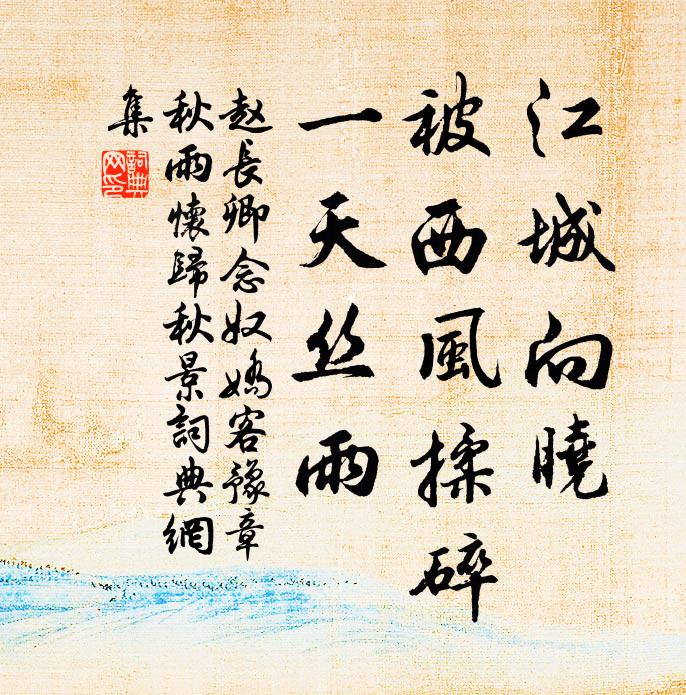 江城向曉
被西風揉碎
一天丝雨
赵長卿念奴嬌客豫章
秋雨懷歸秋景詞典網
集
詞典
网印